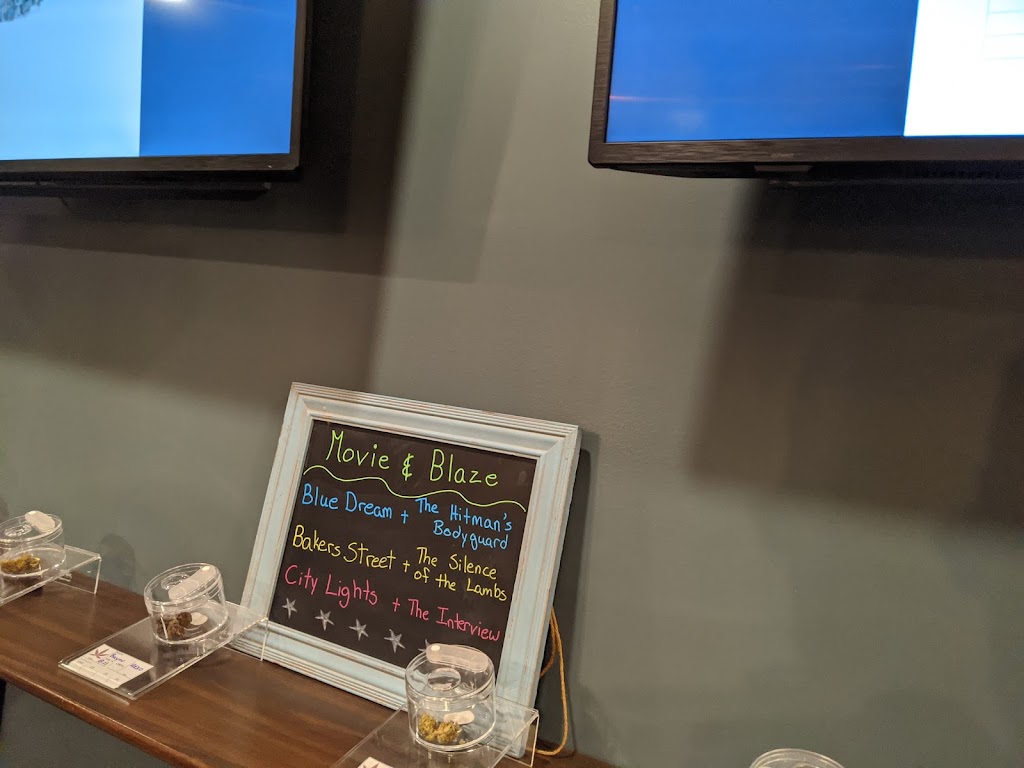 Movie & Blaze
Blue Dream + The Hitman's
Bodyguard
Bakers Street + The Silence
of the Lambs
City Lights + The Interview